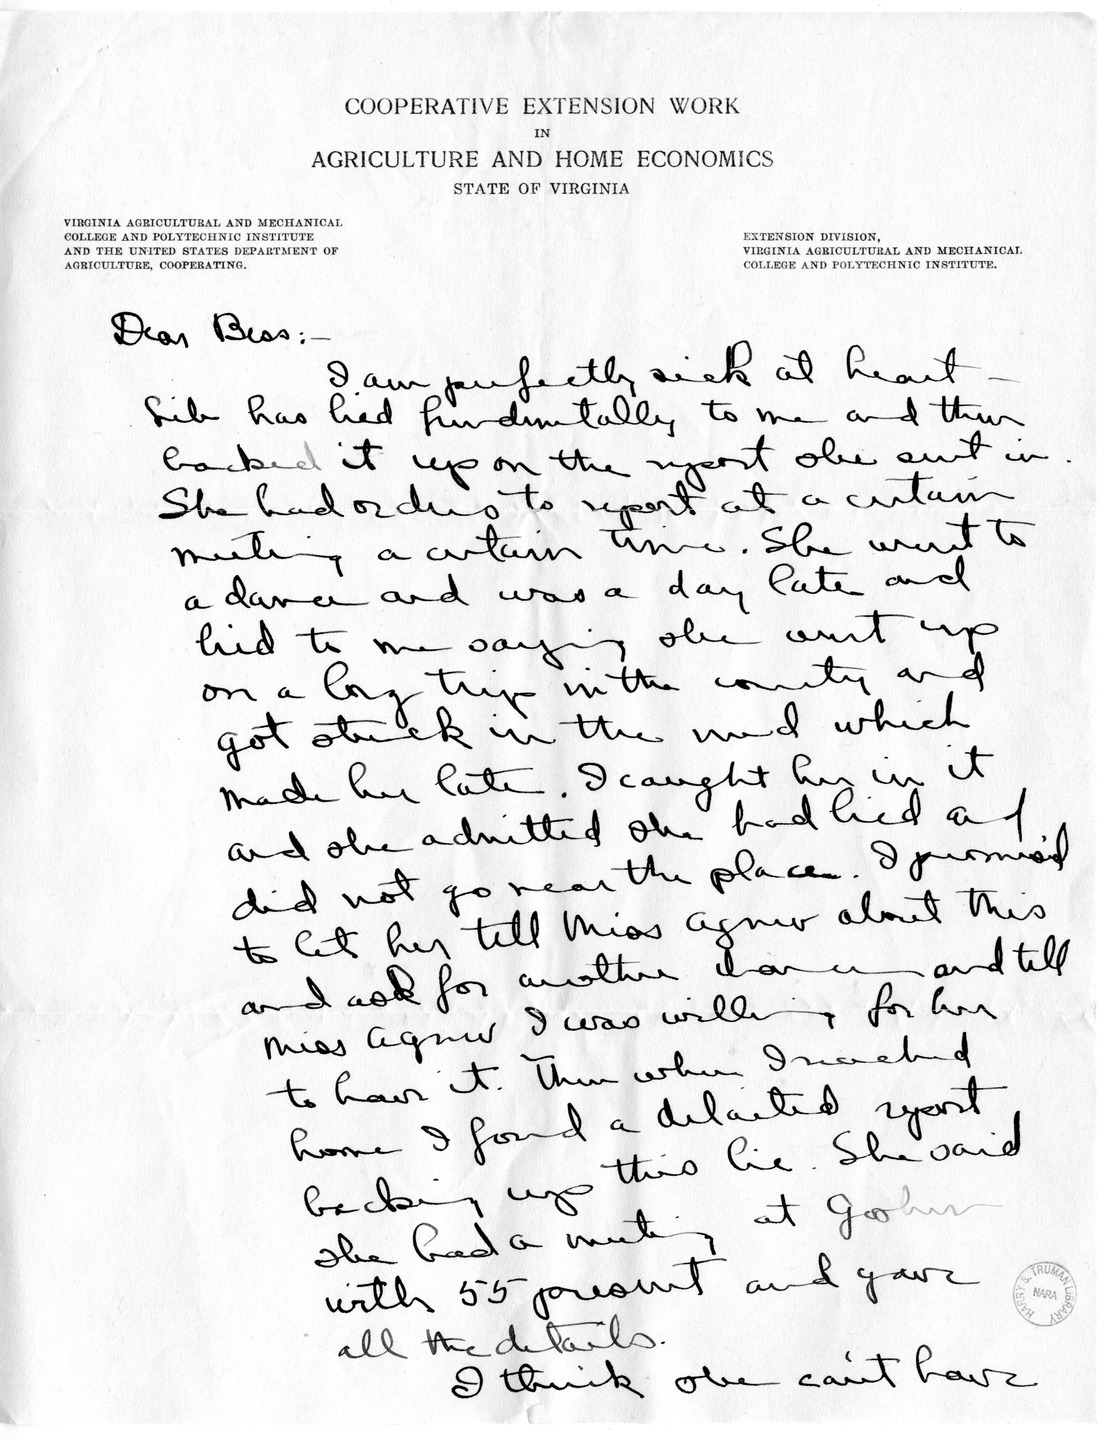 COOPERATIVE EXTENSION WORK
IN
AGRICULTURE AND HOME ECONOMICS
STATE OF VIRGINIA
VIRGINIA AGRICULTURAL AND MECHANICAL
COLLEGE AND POLYTECHNIC INSTITUTE
AND THE UNITED STATES DEPARTMENT OF
AGRICULTURE, COOPERATING.
EXTENSION DIVISION,
VIRGINIA AGRICULTURAL AND MECHANICAL
COLLEGE AND POLYTECHNIC INSTITUTE.
Dear Bess:-
I am perfectly sick at heart -
has lied to me and then
backed it up on the report she sent in.
She had orders to report at a certain
meeting a certain time. She went to
a dance and was a day late and
lied to me saying she went up
on a long trip in the county and
got stuck in the mud which
made her late. I caught her in it
and she admitted she had lied and
did not go near the place. I promised
to let her tell Miss Agnew about this
and ask for another chance and tell
Miss Agnew I was willing for her
to have it. Then when I reached
home I found a report
backing up this lie. She said
she had a meeting at
with 55 present and gave
all the details.
I think she can't have
HARRY S. TRUMAN LIBRARY
NARA